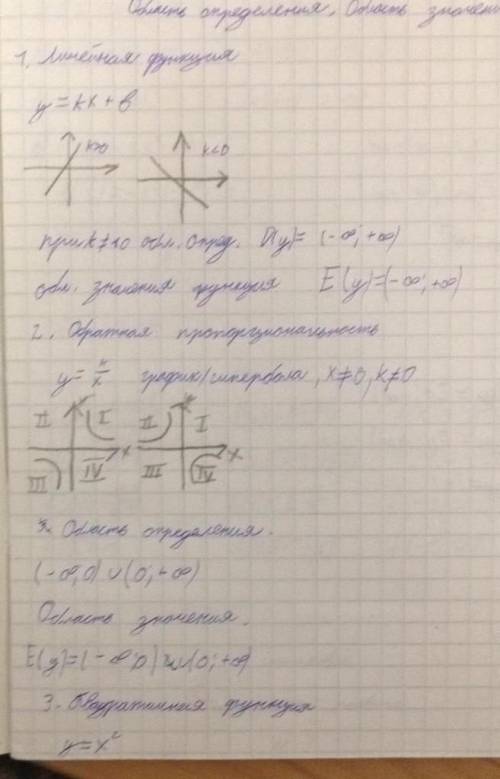 Область определения. Область значени
1. Линейная функция
y = kx + b
k>0 k<0
при k≠0 обл. опред. D(y)= (-∞; +∞)
обл. значения функция E(y)=(-∞; +∞)
2. Обратная пропорциональность
y = k/x график/гипербола, x≠0, k≠0
II I II I
x x
III IV III IV
3. Область определения.
(-∞; 0) ∪ (0; +∞)
Область значения.
E(y)=(-∞; 0) ∪ (0; +∞)
3. Квадратичная функция
y = x²